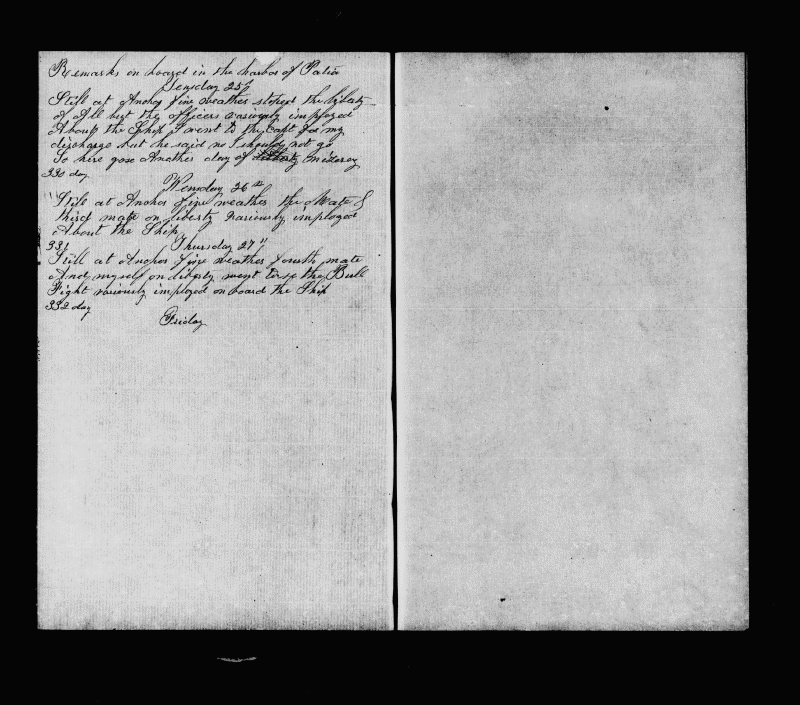 Remarks on board in the harbor of Patia
Teusday 25th
Still at Anchor fine weather stoped the liberty
of All but the officers variously imployed
About the Ship I went to the Capt for my
discharge but he said no I should not go
So here gose Another day of misarey
330 day
Wensday 26th
Still at Anchor fine weather the Mate &
third mate on liberty variously imployed
About the Ship
331
Thursday 27"
Still at Anchor fine weather fourth mate
And myself on liberty went to se the Bull
Fight variously imployed on board the Ship
332 day
Friday